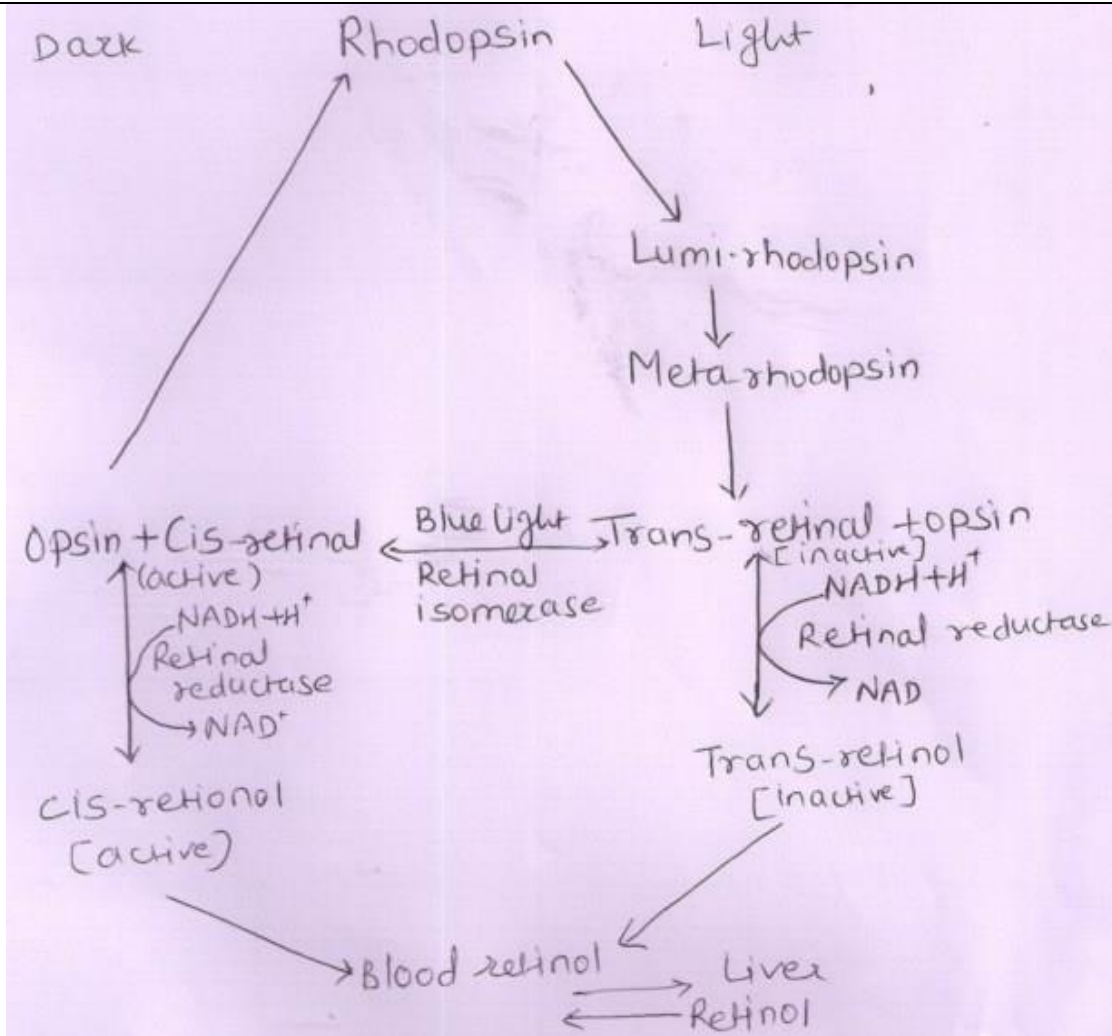 Dark Rhodopsin Light
Lumi-rhodopsin
Meta-rhodopsin
Opsin + Cis-retinal
(active)
Blue light
Retinal
isomerase
Trans-retinal + opsin
[inactive]
NADH+H⁺
Retinal
reductase
NAD⁺
NADH+H⁺
Retinal reductase
NAD
Cis-retionol
[active)
Trans-retinol
[inactive]
Blood retinol
Liver
Retinol